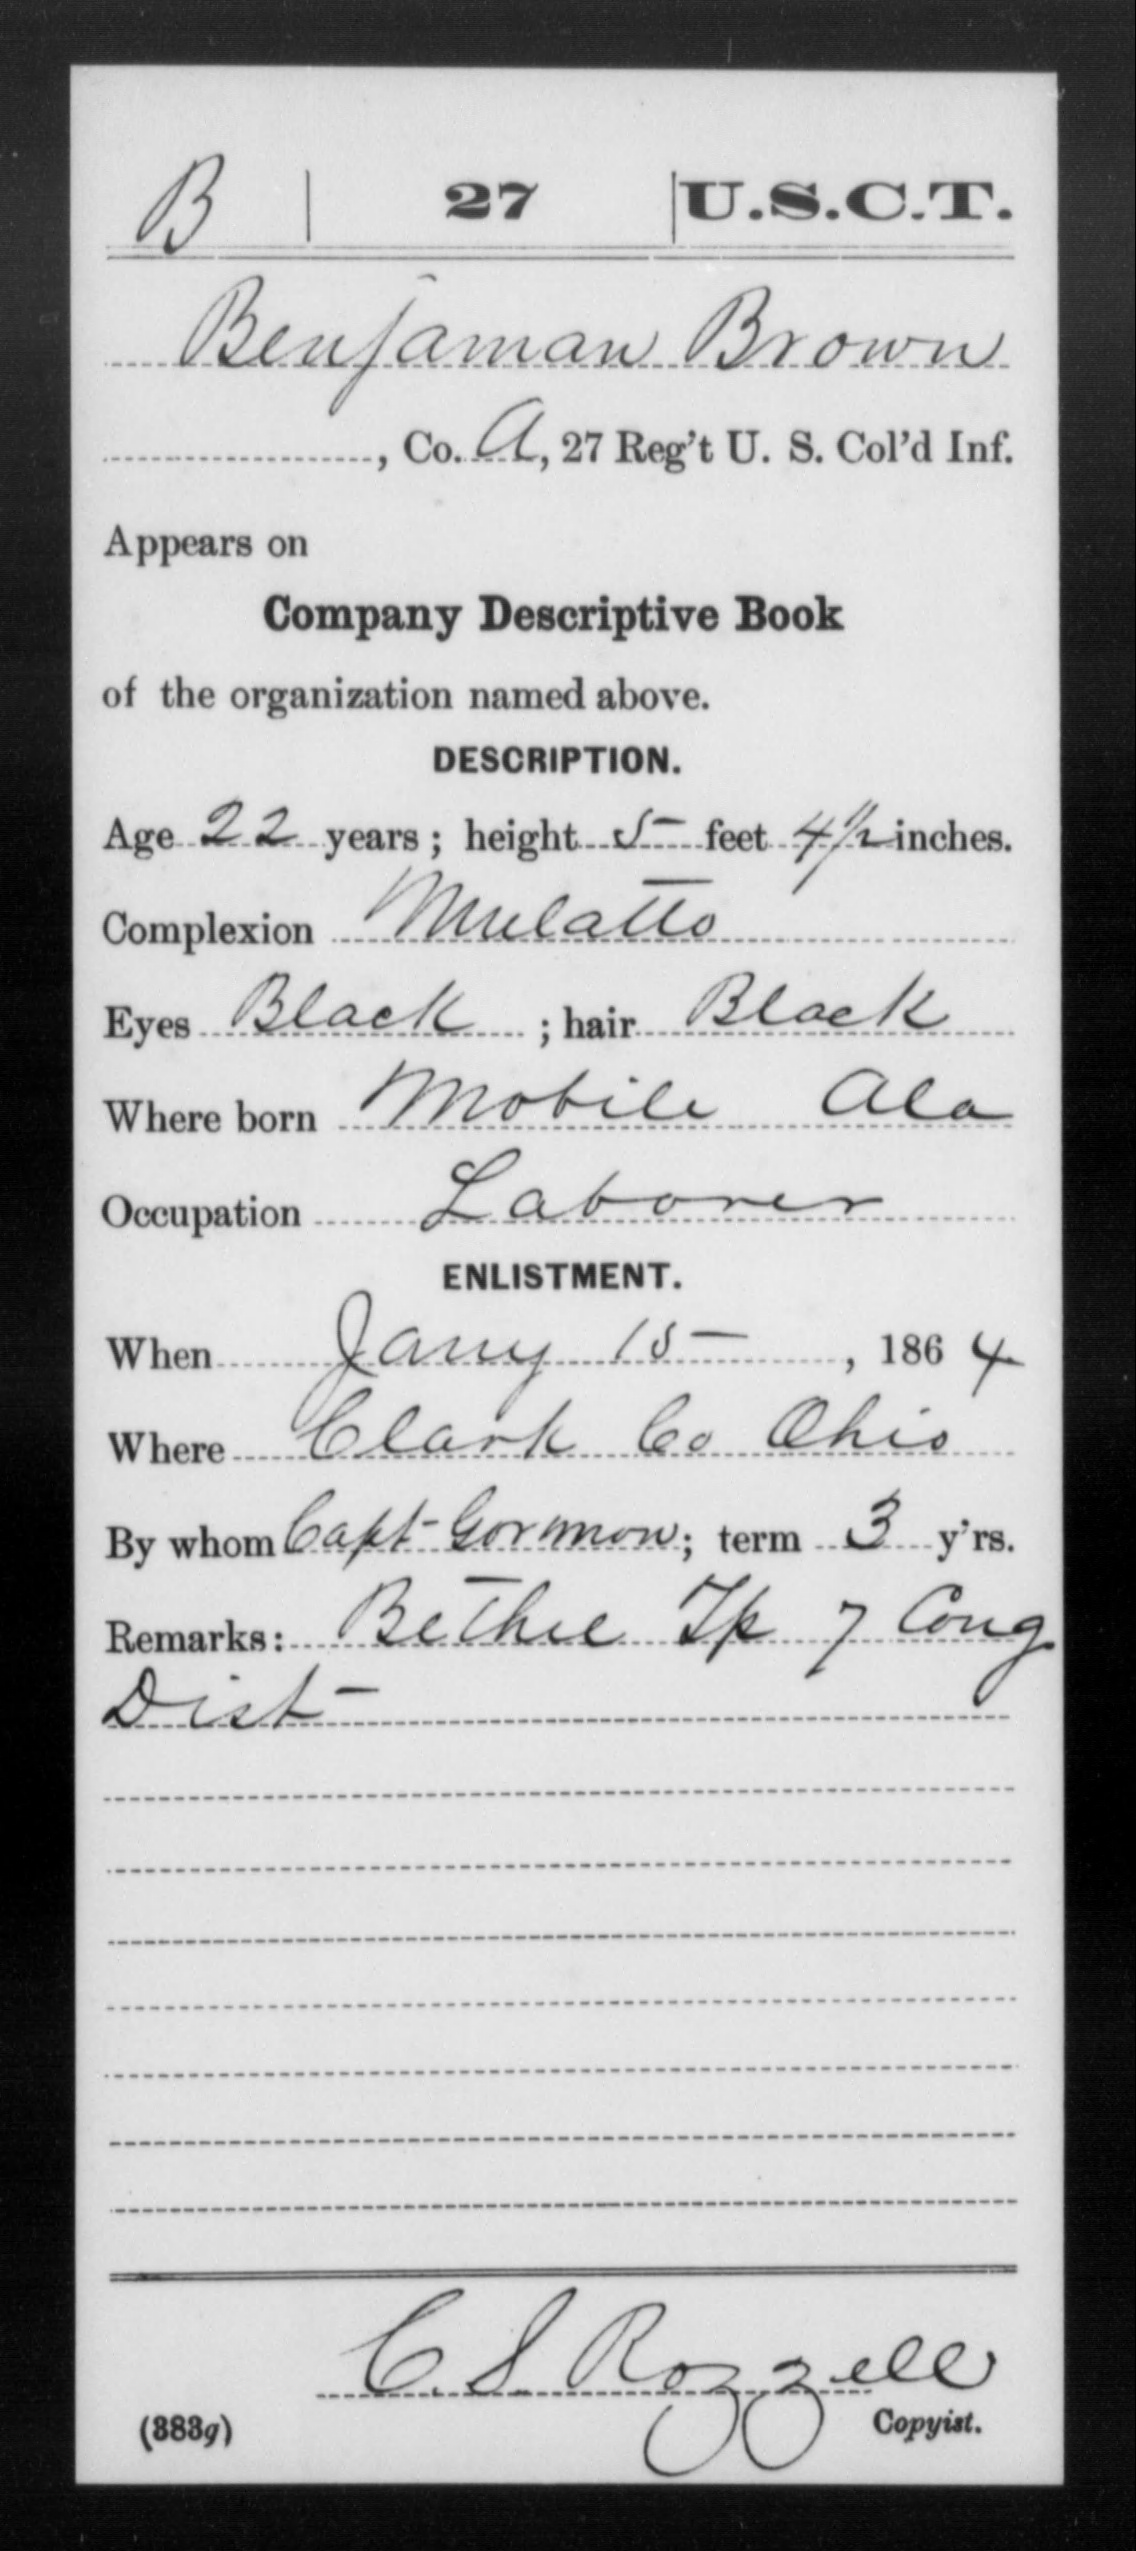 B 27 U.S.C.T.
Benjaman Brown
, Co. A, 27 Reg't U. S. Col'd Inf.
Appears on
Company Descriptive Book
of the organization named above.
DESCRIPTION.
Age 22 years; height 5 feet 4 1/2 inches.
Complexion Mulatto
Eyes Black ; hair Black
Where born Mobile Ala
Occupation Laborer
ENLISTMENT.
When Jany 15 , 1864
Where Clark Co Ohio
By whom Capt Gormon; term 3 y'rs.
Remarks: Bethel Tp 7 Cong
Dist
C. S. Rozzell
(383g) Copyist.